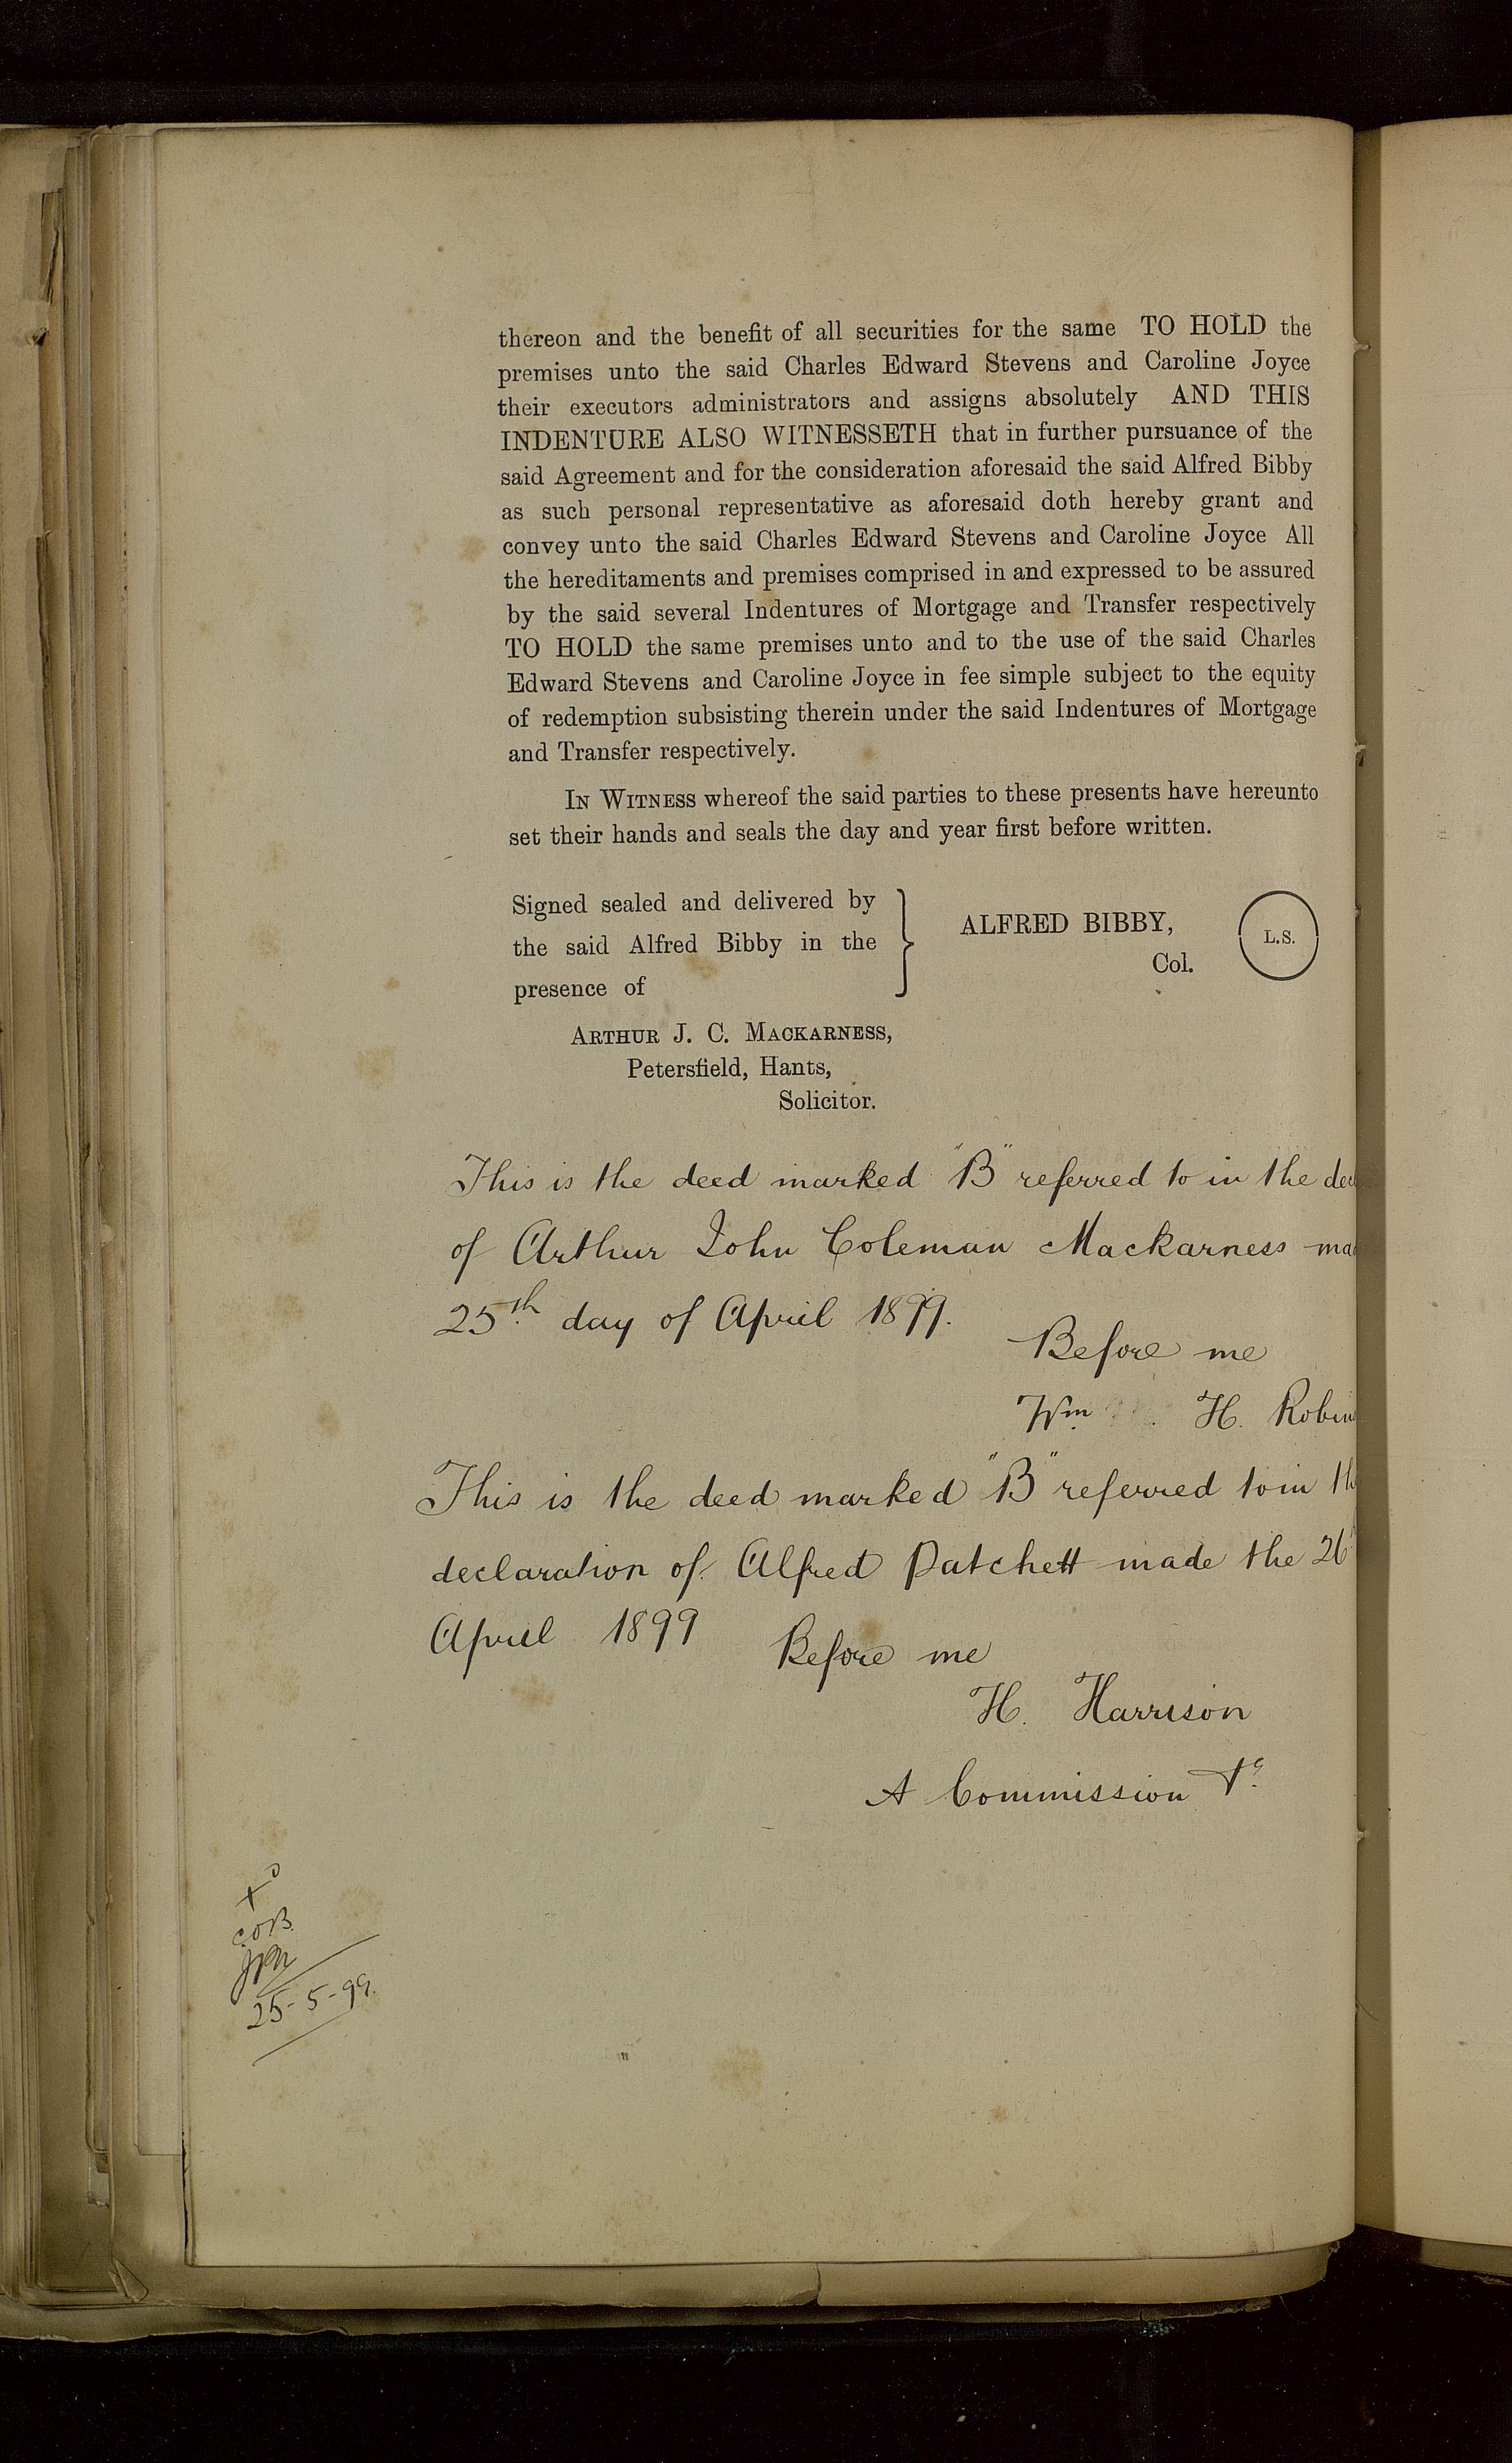 thereon and the benefit of all securities for the same TO HOLD the
premises unto the said Charles Edward Stevens and Caroline Joyce
their executors administrators and assigns absolutely AND THIS
INDENTURE ALSO WITNESSETH that in further pursuance of the
said Agreement and for the consideration aforesaid the said Alfred Bibby
as such personal representative as aforesaid doth hereby grant and
convey unto the said Charles Edward Stevens and Caroline Joyce All
the hereditaments and premises comprised in and expressed to be assured
by the said several Indentures of Mortgage and Transfer respectively
TO HOLD the same premises unto and to the use of the said Charles
Edward Stevens and Caroline Joyce in fee simple subject to the equity
of redemption subsisting therein under the said Indentures of Mortgage
and Transfer respectively.
IN WITNESS whereof the said parties to these presents have hereunto
set their hands and seals the day and year first before written.
Signed sealed and delivered by
the said Alfred Bibby in the
presence of
ALFRED BIBBY,
Col.
L.S.
ARTHUR J. C. MACKARNESS,
Petersfield, Hants,
Solicitor.
This is the deed marked "B" referred to in the
of Arthur John Coleman Mackarness
25th day of April 1899.
Before me
Wm H. Robin
This is the deed marked "B" referred to in
declaration of Alfred Patchett made the 26
April 1899
Before me
H. Harrison
A Commission
25-5-99.